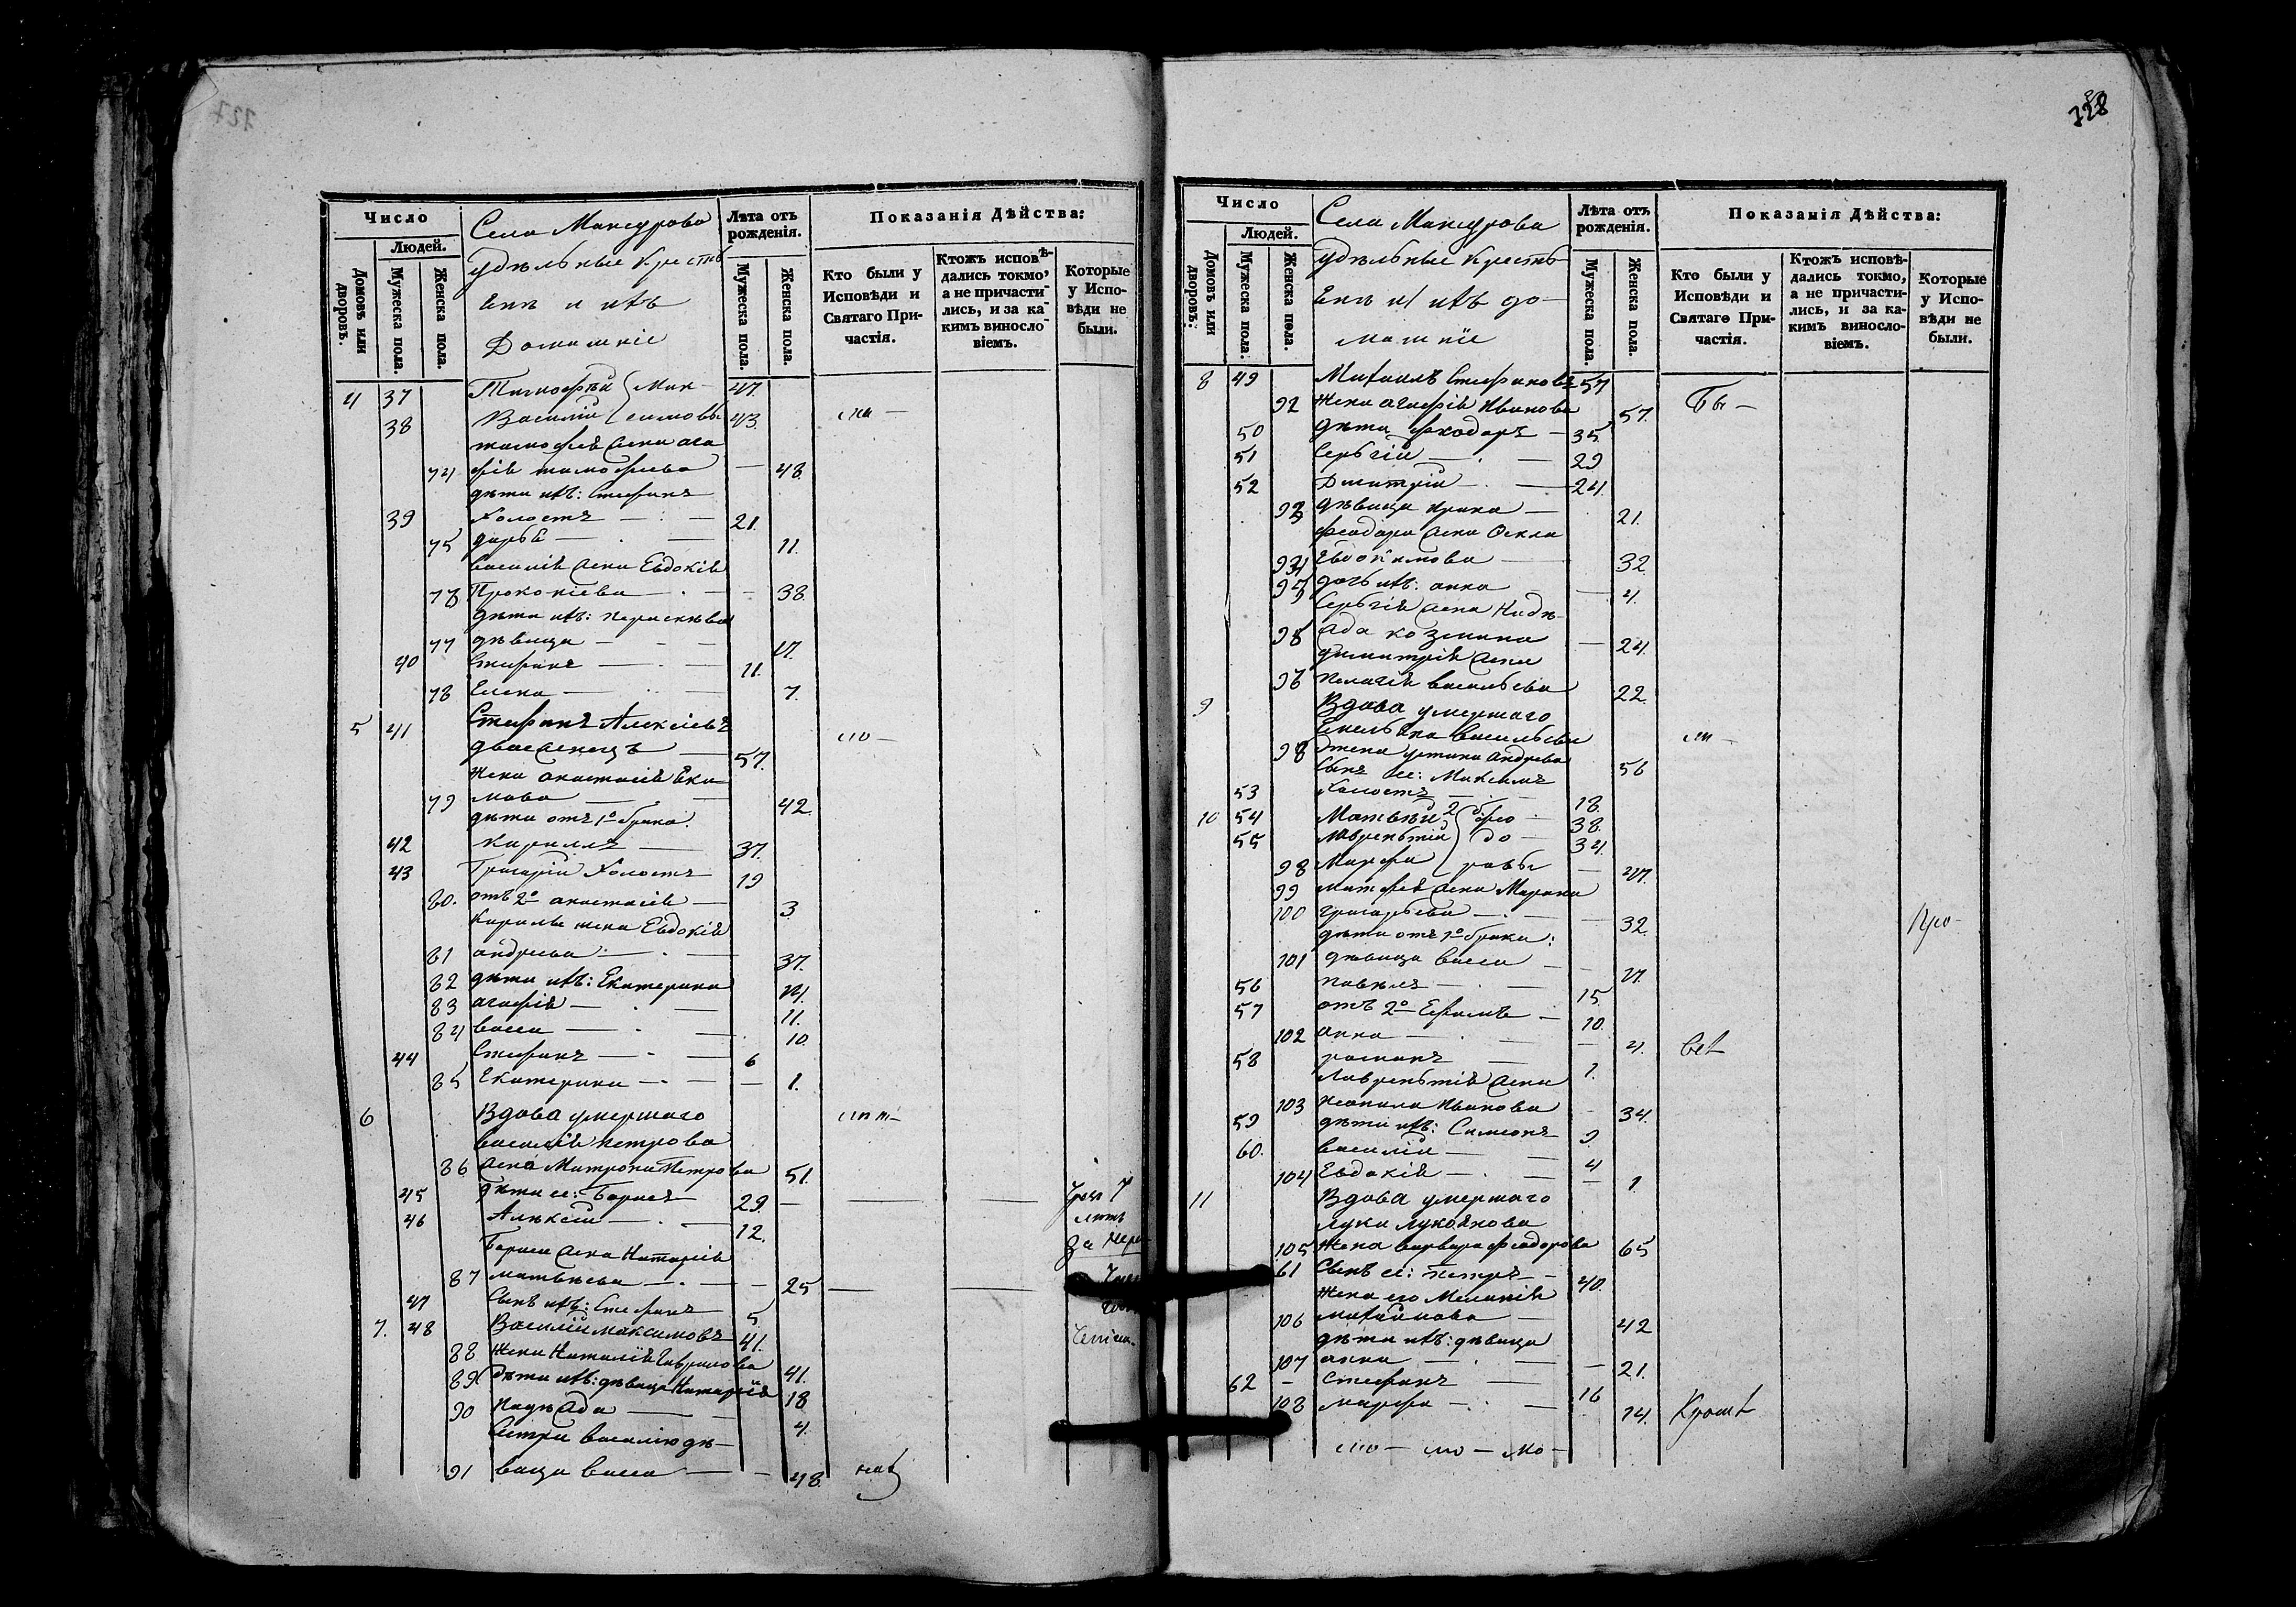 728
Число
Людей.
Домовъ или дворовъ.
Мужеска пола.
Женска пола.
Села Мансурова
Удѣльные Кресть
яне и ихъ
Домашніе
Лѣта отъ рожденія.
Мужеска пола.
Женска пола.
Показанія Дѣйства:
Кто были у Исповѣди и Святаго Причастія.
Ктожъ исповѣдались токмо, а не причастились, и за какимъ винословіемъ.
Которые у Исповѣди не были.
4 37 Тимофѣй Мак- 47.
38 Василій симовы 43.
тимофея жена ага
74 фія тимофеева — 48.
дѣти ихъ: Стефанъ
39 Холостъ — 21.
75 дарья — 11.
василія жена Евдокія
76 Прокопіева — 38.
дѣти ихъ: параскева
77 дѣвица — 17.
40 Стефанъ — 11.
78 Елена — 7.
5 41 Стефанъ Алексіевъ
двоеженецъ — 57.
жена анастасія Еки
79 мова — 42.
дѣти отъ 1го брака.
42 Кириллъ — 37.
43 Григорій Холостъ 19
80. отъ 2го анастасія — 3
Кирилы жена Евдокія
81 андреева — 37.
82 дѣти ихъ: Екатерина 14.
83 агафія — 11.
84 васса — 10.
44 Стефанъ — 6
85 Екатерина — 1.
6 Вдова умершаго
василія петрова
86 жена Матрона Петрова 51.
45 дѣти ее: Борисъ 29. —
46 Алексій — 12.
лѣтъ
Бориса жена Наталія
87 матвѣева — 25
47 Сынъ ихъ: Стефанъ 5
7. 48 Василій максимовъ 41.
88 жена Наталія Гаврилова 41.
89 дѣти ихъ: дѣвица Наталія 18
90 Надежда — 4.
Сестра василію дѣ-
91 вица васса — 48.
Число
Людей.
Домовъ или дворовъ.
Мужеска пола.
Женска пола.
Села Мансурова
Удѣльные Кресть
яне и ихъ до-
машніе
Лѣта отъ рожденія.
Мужеска пола.
Женска пола.
Показанія Дѣйства:
Кто были у Исповѣди и Святаго Причастія.
Ктожъ исповѣдались токмо, а не причастились, и за какимъ винословіемъ.
Которые у Исповѣди не были.
8 49 Михаилъ Стефановъ 57 Бы —
92 жена агафія Иванова 57.
50 дѣти феодоръ — 35.
51 Сергій — 29
52 Димитрій — 24.
93 дѣвица Ирина — 21.
феодора жена Фекла
94 Евдокимова — 32.
95 дочь ихъ: анна — 4.
Сергія жена Надѣ
96 жда козмина — 24.
димитрія жена
96 пелагія васильева 22.
9 Вдова умершаго
Емельяна васильева
98 жена устина андреева 56
Сынъ ее: Максимъ
53 Холостъ — 18.
10 54 Матвѣй 2й борео 38.
55 лаврентій до — 34.
98 Марфа ровы — 47.
99 матфея жена Марина
100 григорьева — 32.
дѣти отъ 1го брака:
101 дѣвица васса — 17.
56 павелъ — 15.
57 отъ 2го Ефимъ — 10.
102 анна — 4. всѣ
58 романъ — 1.
лаврентія жена
103 неонила Иванова — 34.
59 дѣти ихъ: Симеонъ 9.
60. василій — 4
104 Евдокія — 1
11 Вдова умершаго
луки лукоянова
105 жена варвара феодорова 65
61 Сынъ ее: петръ — 40.
жена его Меланія
106 михайлова — 42
дѣти ихъ: дѣвица
107 анна — 21.
62 Стефанъ — 16
108 марфа — 14.